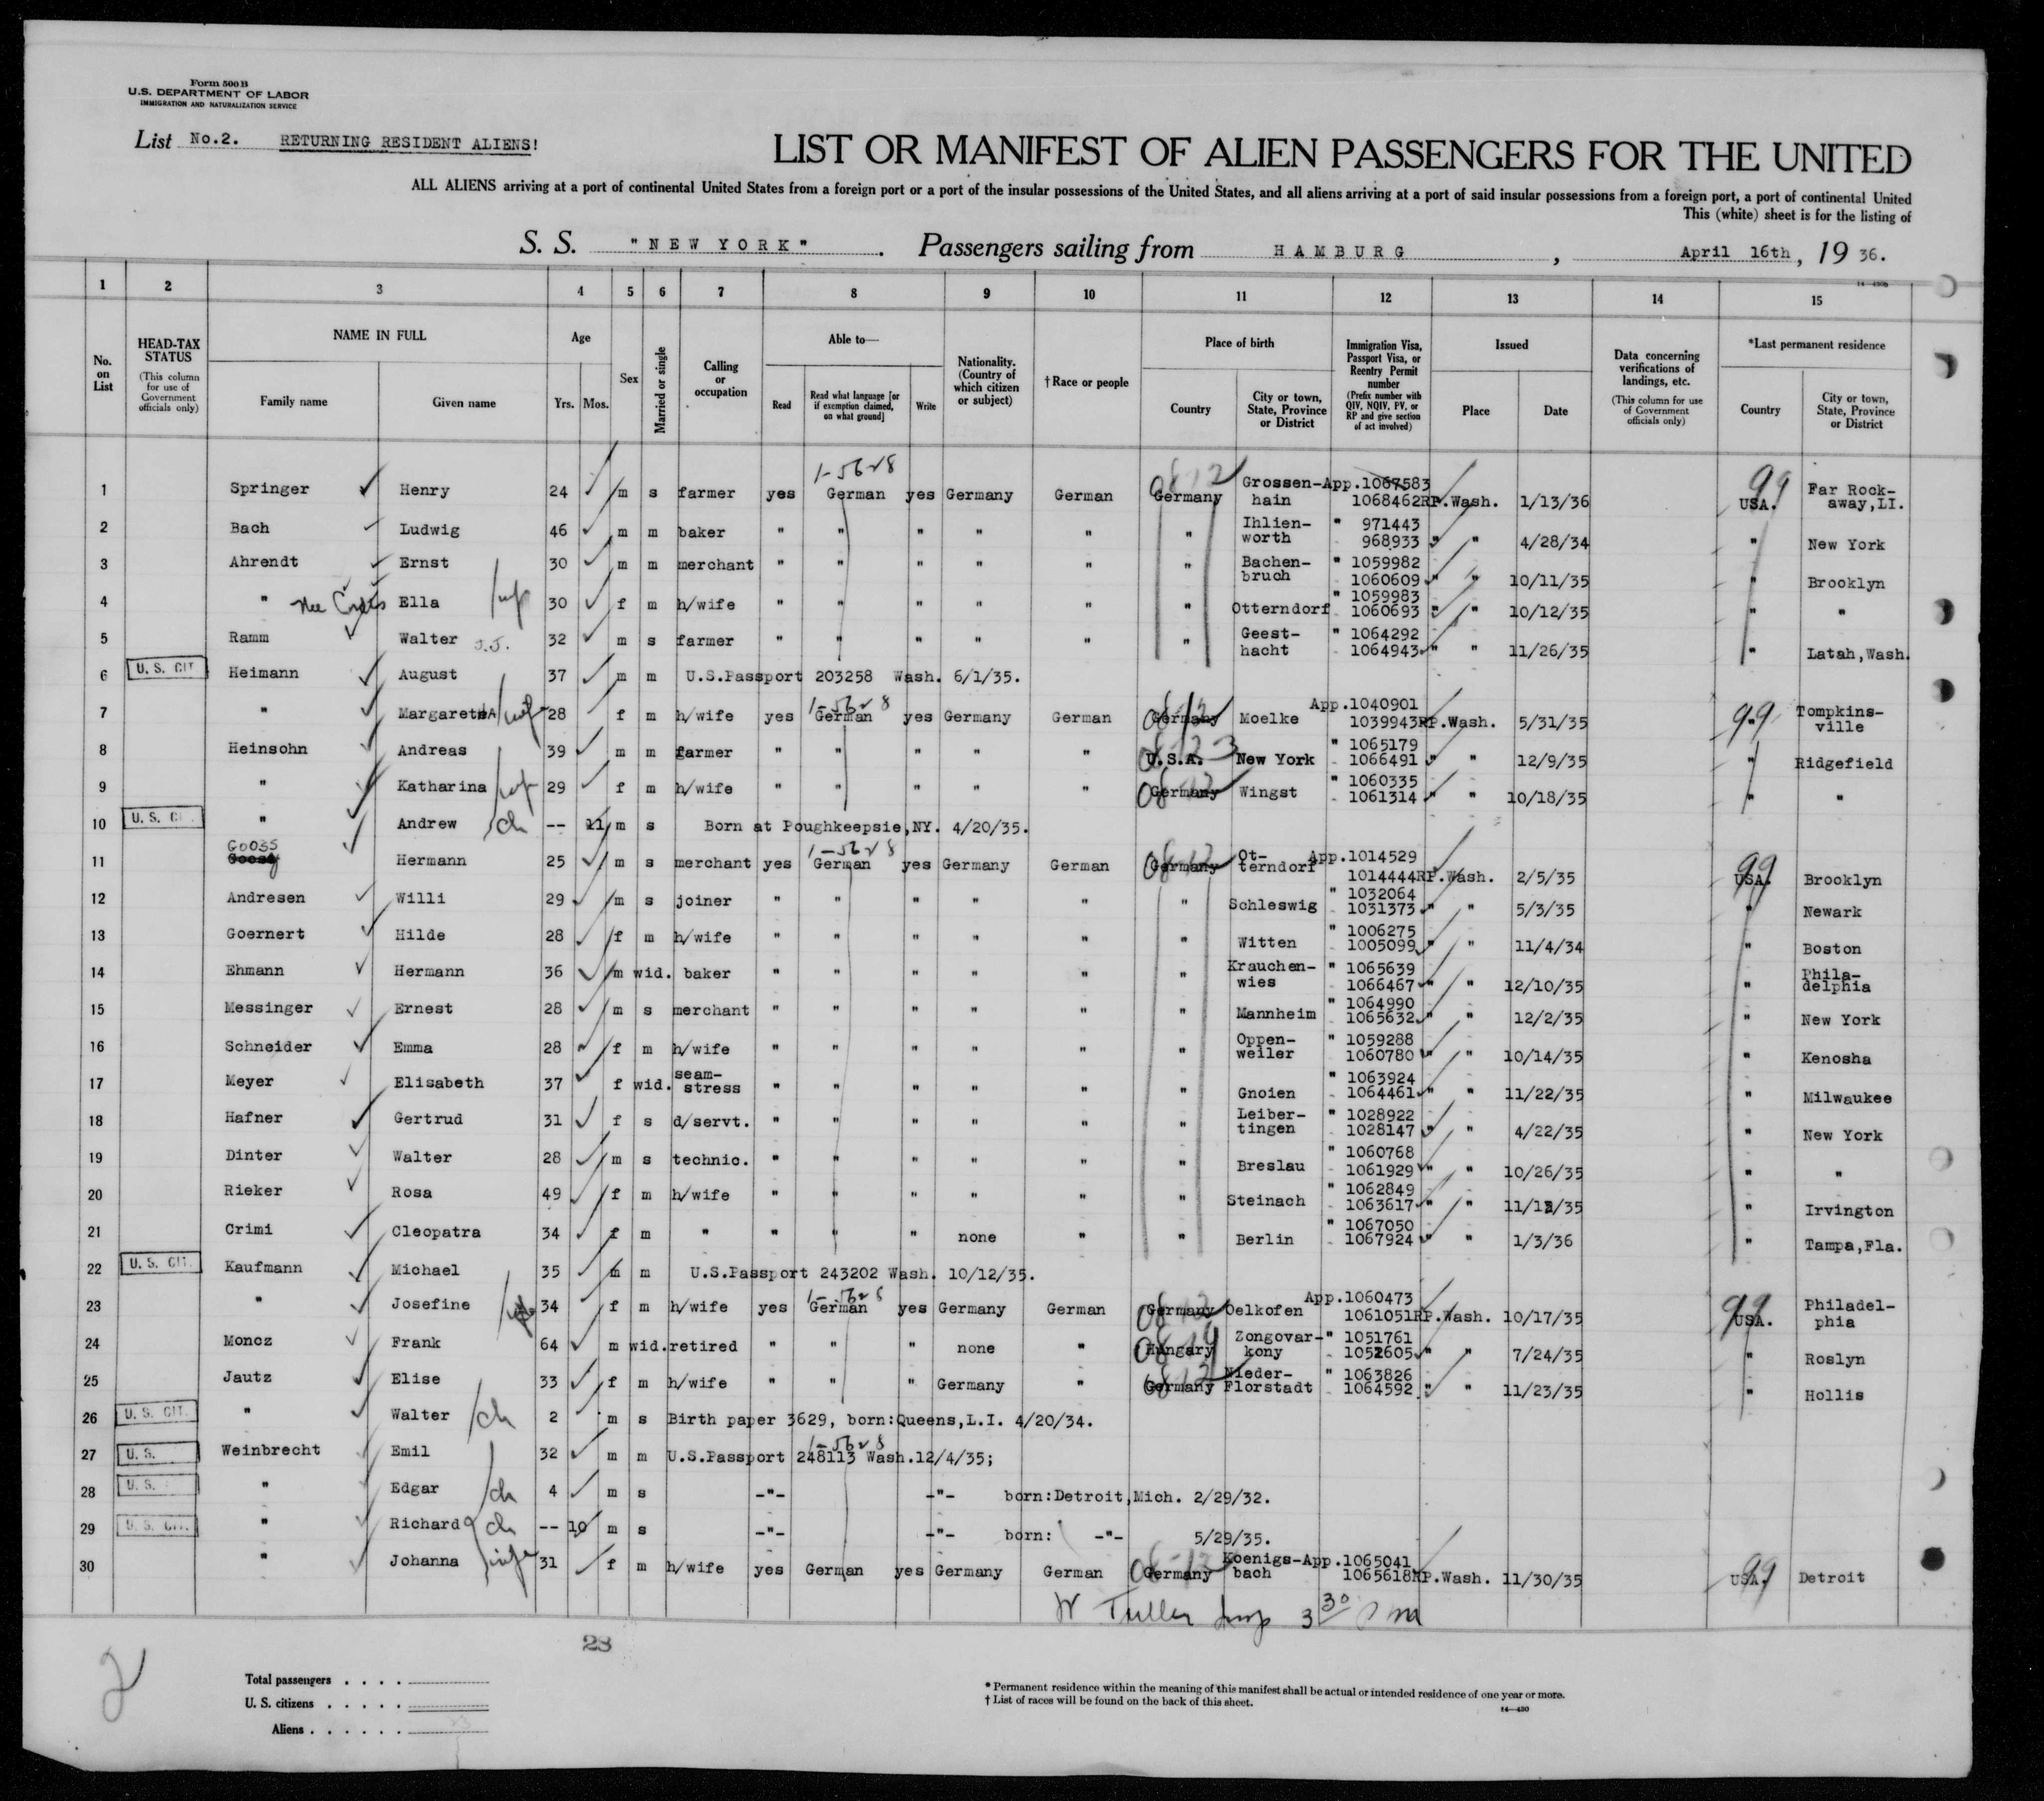 Form 500 B
U.S. DEPARTMENT OF LABOR
IMMIGRATION AND NATURALIZATION SERVICE
List No.2. RETURNING RESIDENT ALIENS!
LIST OR MANIFEST OF ALIEN PASSENGERS FOR THE UNITED
ALL ALIENS arriving at a port of continental United States from a foreign port or a port of the insular possessions of the United States, and all aliens arriving at a port of said insular possessions from a foreign port, a port of continental United
This (white) sheet is for the listing of
S. S. "NEW YORK". Passengers sailing from HAMBURG, April 16th, 19 36.
1 2 3 4 5 6 7 8 9 10 11 12 13 14 15
No. on List
HEAD-TAX STATUS (This column for use of Government officials only)
NAME IN FULL
Family name Given name
Age Yrs. Mos.
Sex
Married or single
Calling or occupation
Able to—
Read Read what language [or if exemption claimed, on what ground] Write
Nationality. (Country of which citizen or subject)
†Race or people
Place of birth
Country City or town, State, Province or District
Immigration Visa, Passport Visa, or Reentry Permit number (Prefix number with QIV, NQIV, PV, or RP and give section of act involved)
Issued
Place Date
Data concerning verifications of landings, etc. (This column for use of Government officials only)
*Last permanent residence
Country City or town, State, Province or District
1 Springer Henry 24 m s farmer yes German yes Germany German Germany Grossen-hain App.1067583 1068462RP.Wash. 1/13/36 USA. Far Rock-away,LI.
2 Bach Ludwig 46 m m baker " " " " " " Ihlien-worth " 971443 968933 " " 4/28/34 " New York
3 Ahrendt Ernst 30 m m merchant " " " " " " Bachen-bruch " 1059982 1060609 " " 10/11/35 " Brooklyn
4 " nee Cordts Ella 30 f m h/wife " " " " " " Otterndorf " 1059983 1060693 " " 10/12/35 " "
5 Ramm Walter 32 m s farmer " " " " " " Geest-hacht " 1064292 1064943 " " 11/26/35 " Latah,Wash.
6 U. S. CIT Heimann August 37 m m U.S.Passport 203258 Wash. 6/1/35.
7 " Margaretha wife 28 f m h/wife yes German yes Germany German Germany Moelke App.1040901 1039943RP.Wash. 5/31/35 " Tompkins-ville
8 Heinsohn Andreas 39 m m farmer " " " " " U.S.A. New York " 1065179 1066491 " " 12/9/35 " Ridgefield
9 " Katharina wf 29 f m h/wife " " " " " Germany Wingst " 1060335 1061314 " " 10/18/35 " "
10 U. S. CI " Andrew ch -- 11 m s Born at Poughkeepsie,NY. 4/20/35.
11 GOOSS Hermann 25 m s merchant yes German yes Germany German Germany Ot-terndorf App.1014529 1014444RP.Wash. 2/5/35 USA. Brooklyn
12 Andresen Willi 29 m s joiner " " " " " " Schleswig " 1032064 1031373 " " 5/3/35 " Newark
13 Goernert Hilde 28 f m h/wife " " " " " " Witten " 1006275 1005099 " " 11/4/34 " Boston
14 Ehmann Hermann 36 m wid. baker " " " " " " Krauchen-wies " 1065639 1066467 " " 12/10/35 " Phila-delphia
15 Messinger Ernest 28 m s merchant " " " " " " Mannheim " 1064990 1065632 " " 12/2/35 " New York
16 Schneider Emma 28 f m h/wife " " " " " " Oppen-weiler " 1059288 1060780 " " 10/14/35 " Kenosha
17 Meyer Elisabeth 37 f wid. seam-stress " " " " " " Gnoien " 1063924 1064461 " " 11/22/35 " Milwaukee
18 Hafner Gertrud 31 f s d/servt. " " " " " " Leiber-tingen " 1028922 1028147 " " 4/22/35 " New York
19 Dinter Walter 28 m s technic. " " " " " " Breslau " 1060768 1061929 " " 10/26/35 " "
20 Rieker Rosa 49 f m h/wife " " " " " " Steinach " 1062849 1063617 " " 11/12/35 " Irvington
21 Crimi Cleopatra 34 f m " " " " none " " Berlin " 1067050 1067924 " " 1/3/36 " Tampa,Fla.
22 U. S. CIT. Kaufmann Michael 35 m m U.S.Passport 243202 Wash. 10/12/35.
23 " Josefine 34 f m h/wife yes German yes Germany German Germany Oelkofen App.1060473 1061051RP.Wash. 10/17/35 USA. Philadel-phia
24 Moncz Frank 64 m wid. retired " " " none " Hungary Zongovar-kony " 1051761 1052605 " " 7/24/35 " Roslyn
25 Jautz Elise 33 f m h/wife " " " Germany " Germany Nieder-Florstadt " 1063826 1064592 " " 11/23/35 " Hollis
26 U. S. CIT. " Walter ch 2 m s Birth paper 3629, born:Queens,L.I. 4/20/34.
27 U. S. Weinbrecht Emil 32 m m U.S.Passport 248113 Wash.12/4/35;
28 U. S. " Edgar ch 4 m s -"- -"- born:Detroit,Mich. 2/29/32.
29 U. S. CIT. " Richard ch -- 10 m s -"- -"- born: -"- 5/29/35.
30 " Johanna wife 31 f m h/wife yes German yes Germany German Germany Koenigs-bach App.1065041 1065618RP.Wash. 11/30/35 USA. Detroit
W Tuller Insp 3 30 P m
23
2
Total passengers . . . .
U. S. citizens . . . . .
Aliens . . . . . .
* Permanent residence within the meaning of this manifest shall be actual or intended residence of one year or more.
† List of races will be found on the back of this sheet.
14—430